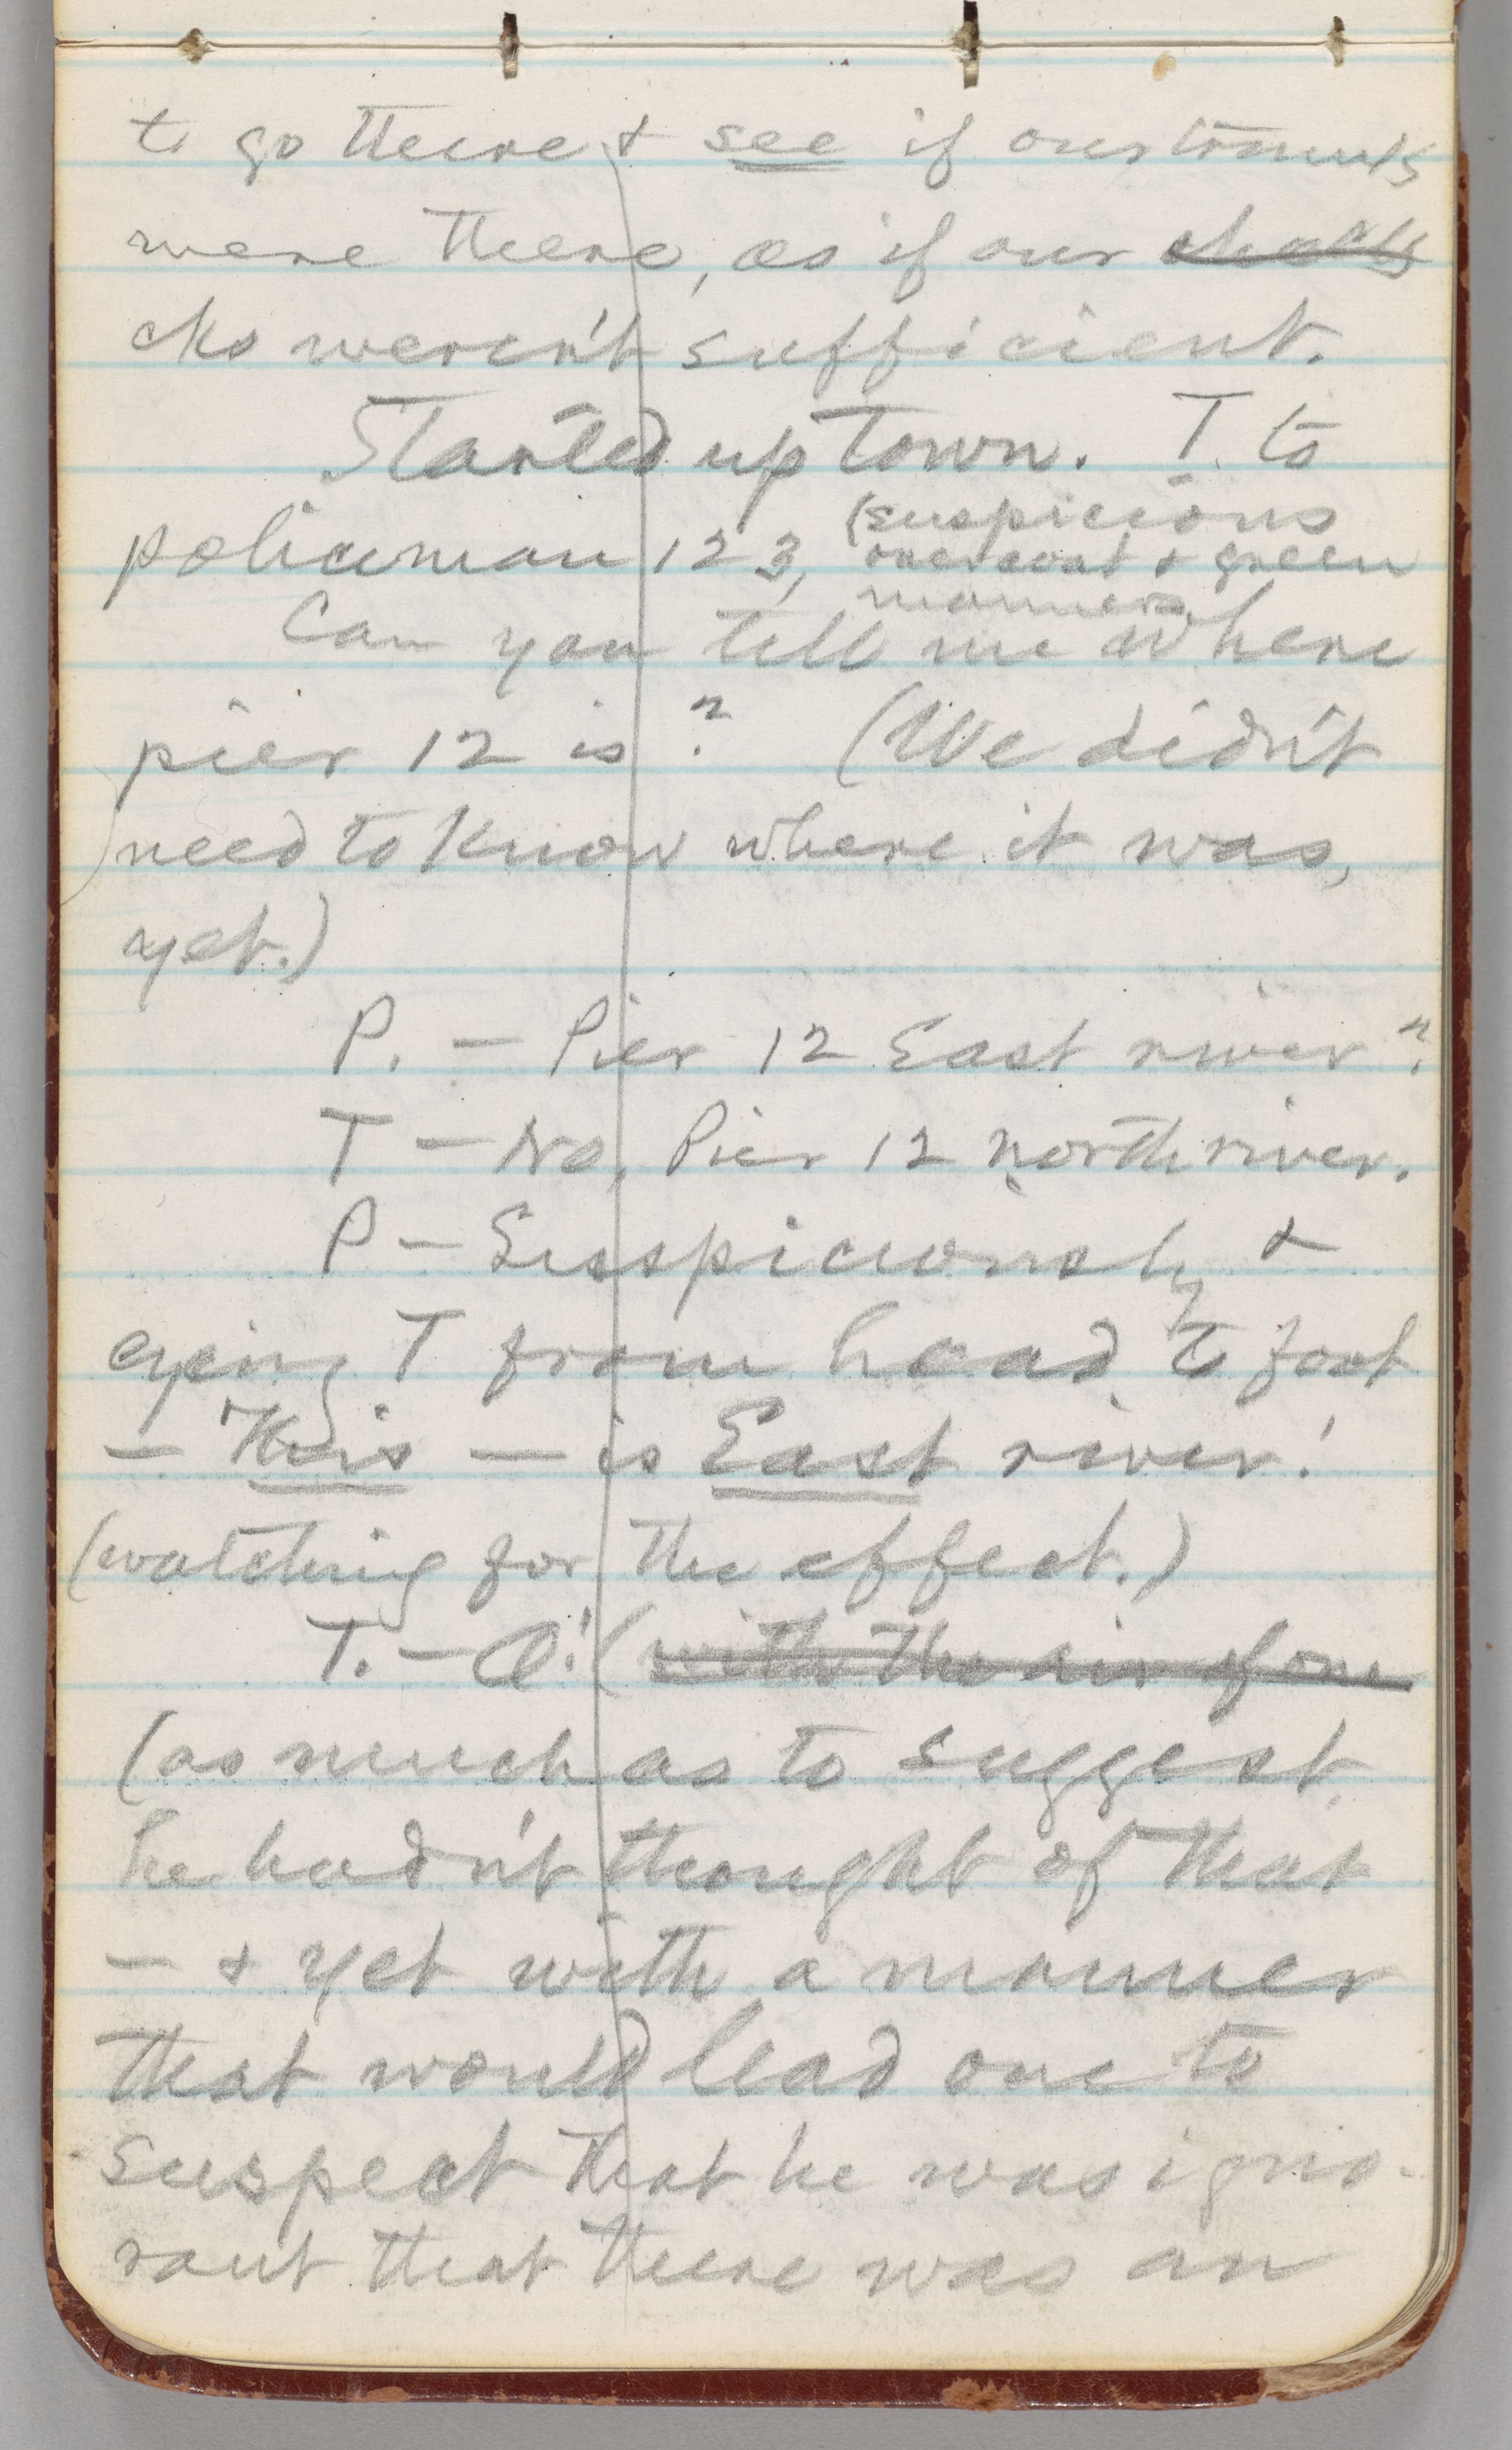 to go there & see if our trunks
were there, as if our checks
cks weren't sufficient.
Started up town. T. to
policeman 123, (suspicious
overcoat & green
manner)
Can you tell me where
pier 12 is? (We didn't
need to know where it was,
yet.)
P. — Pier 12 East river?
T — No, Pier 12 north river.
P — Suspiciously &
eyeing T from head to foot
— This — is East river!
(watching for the effect.)
T. — O! (with the air of one
(as much as to suggest
he hadn't thought of that
— & yet with a manner
that would lead one to
suspect that he was igno-
rant that there was an